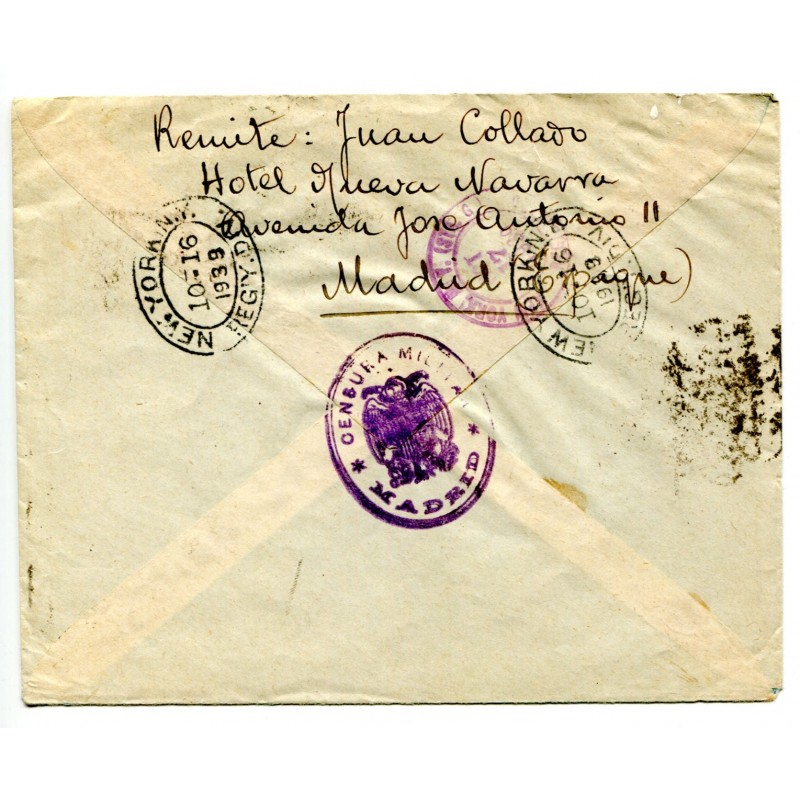 Remite: Juan Collado
Hotel Nueva Navarra
Avenida José Antonio 11
Madrid (Espagne)
NEW YORK N.Y. REG'Y.DIV.
10-16
1939
NEW YORK N.Y. REG'Y.DIV.
10-16
1939
CENSURA MILITAR
* MADRID *